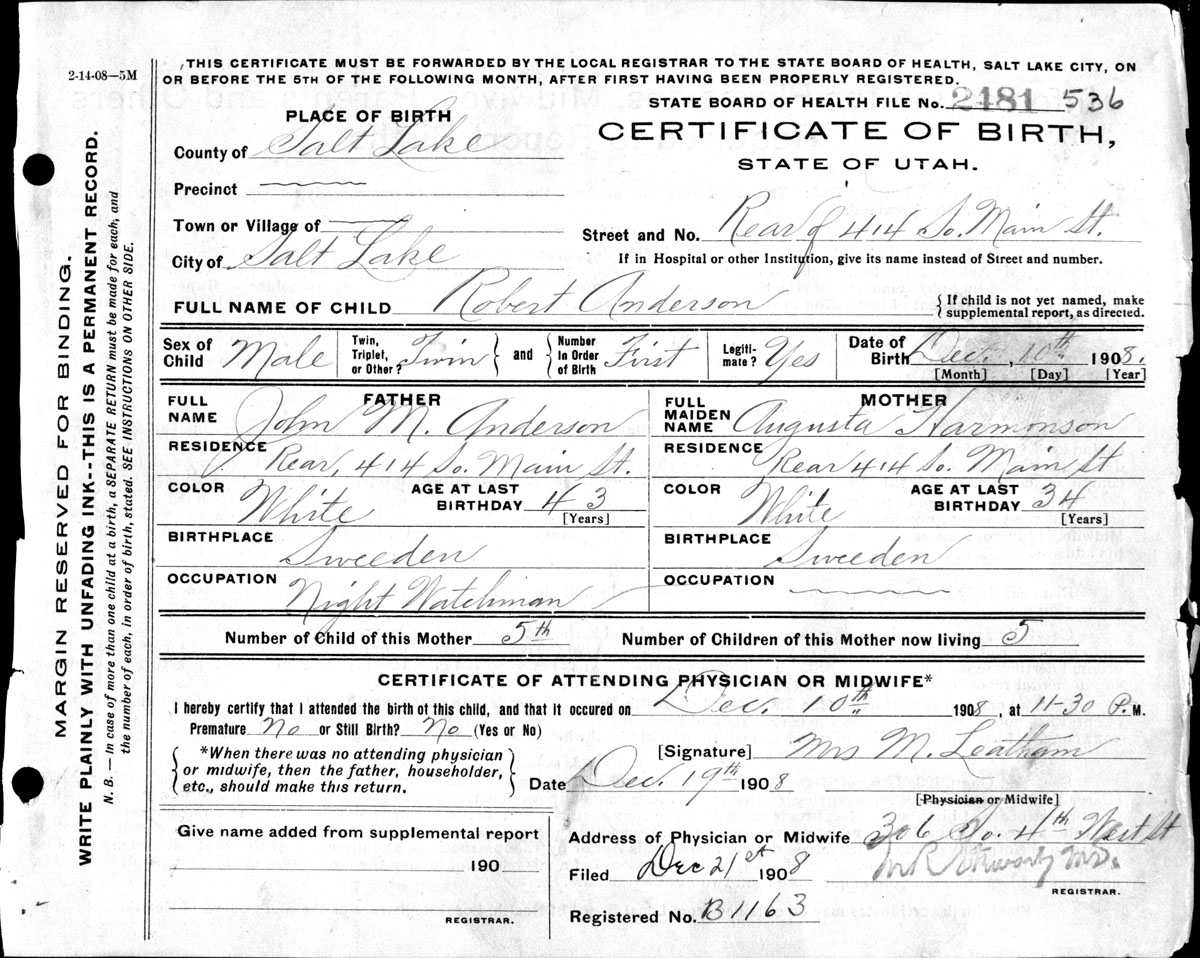 2-14-08—5M
THIS CERTIFICATE MUST BE FORWARDED BY THE LOCAL REGISTRAR TO THE STATE BOARD OF HEALTH, SALT LAKE CITY, ON
OR BEFORE THE 5TH OF THE FOLLOWING MONTH, AFTER FIRST HAVING BEEN PROPERLY REGISTERED.
STATE BOARD OF HEALTH FILE No. 2481 536
PLACE OF BIRTH
CERTIFICATE OF BIRTH,
STATE OF UTAH.
County of Salt Lake
Precinct
Town or Village of
Street and No. Rear of 414 So. Main St.
City of Salt Lake
If in Hospital or other Institution, give its name instead of Street and number.
FULL NAME OF CHILD Robert Anderson
{ If child is not yet named, make
{ supplemental report, as directed.
Sex of Child Male
Twin, Triplet, or Other? Twin } and { Number In Order of Birth First
Legiti-mate? Yes
Date of Birth Dec. , 10th 1908.
[Month] [Day] [Year]
FATHER
FULL NAME John M. Anderson
RESIDENCE Rear, 414 So. Main St.
COLOR White
AGE AT LAST BIRTHDAY 43
[Years]
BIRTHPLACE Sweeden
OCCUPATION Night Watchman
MOTHER
FULL MAIDEN NAME Augusta Harmonson
RESIDENCE Rear 414 So. Main St
COLOR White
AGE AT LAST BIRTHDAY 34
[Years]
BIRTHPLACE Sweeden
OCCUPATION
Number of Child of this Mother 5th Number of Children of this Mother now living 5
CERTIFICATE OF ATTENDING PHYSICIAN OR MIDWIFE*
I hereby certify that I attended the birth of this child, and that it occured on Dec. 10th 1908, at 11-30 P.M.
Premature No or Still Birth? No (Yes or No)
{ *When there was no attending physician
or midwife, then the father, householder,
etc., should make this return. }
[Signature] Mrs M. Leatham
Date Dec. 19th 1908
[Physician or Midwife]
Give name added from supplemental report
190
REGISTRAR.
Address of Physician or Midwife 306 So. 4th West St
Filed Dec 21st 1908
M.D.
REGISTRAR.
Registered No. B1163
MARGIN RESERVED FOR BINDING.
WRITE PLAINLY WITH UNFADING INK--THIS IS A PERMANENT RECORD.
N. B. — In case of more than one child at a birth, a SEPARATE RETURN must be made for each, and
the number of each, in order of birth, stated. SEE INSTRUCTIONS ON OTHER SIDE.